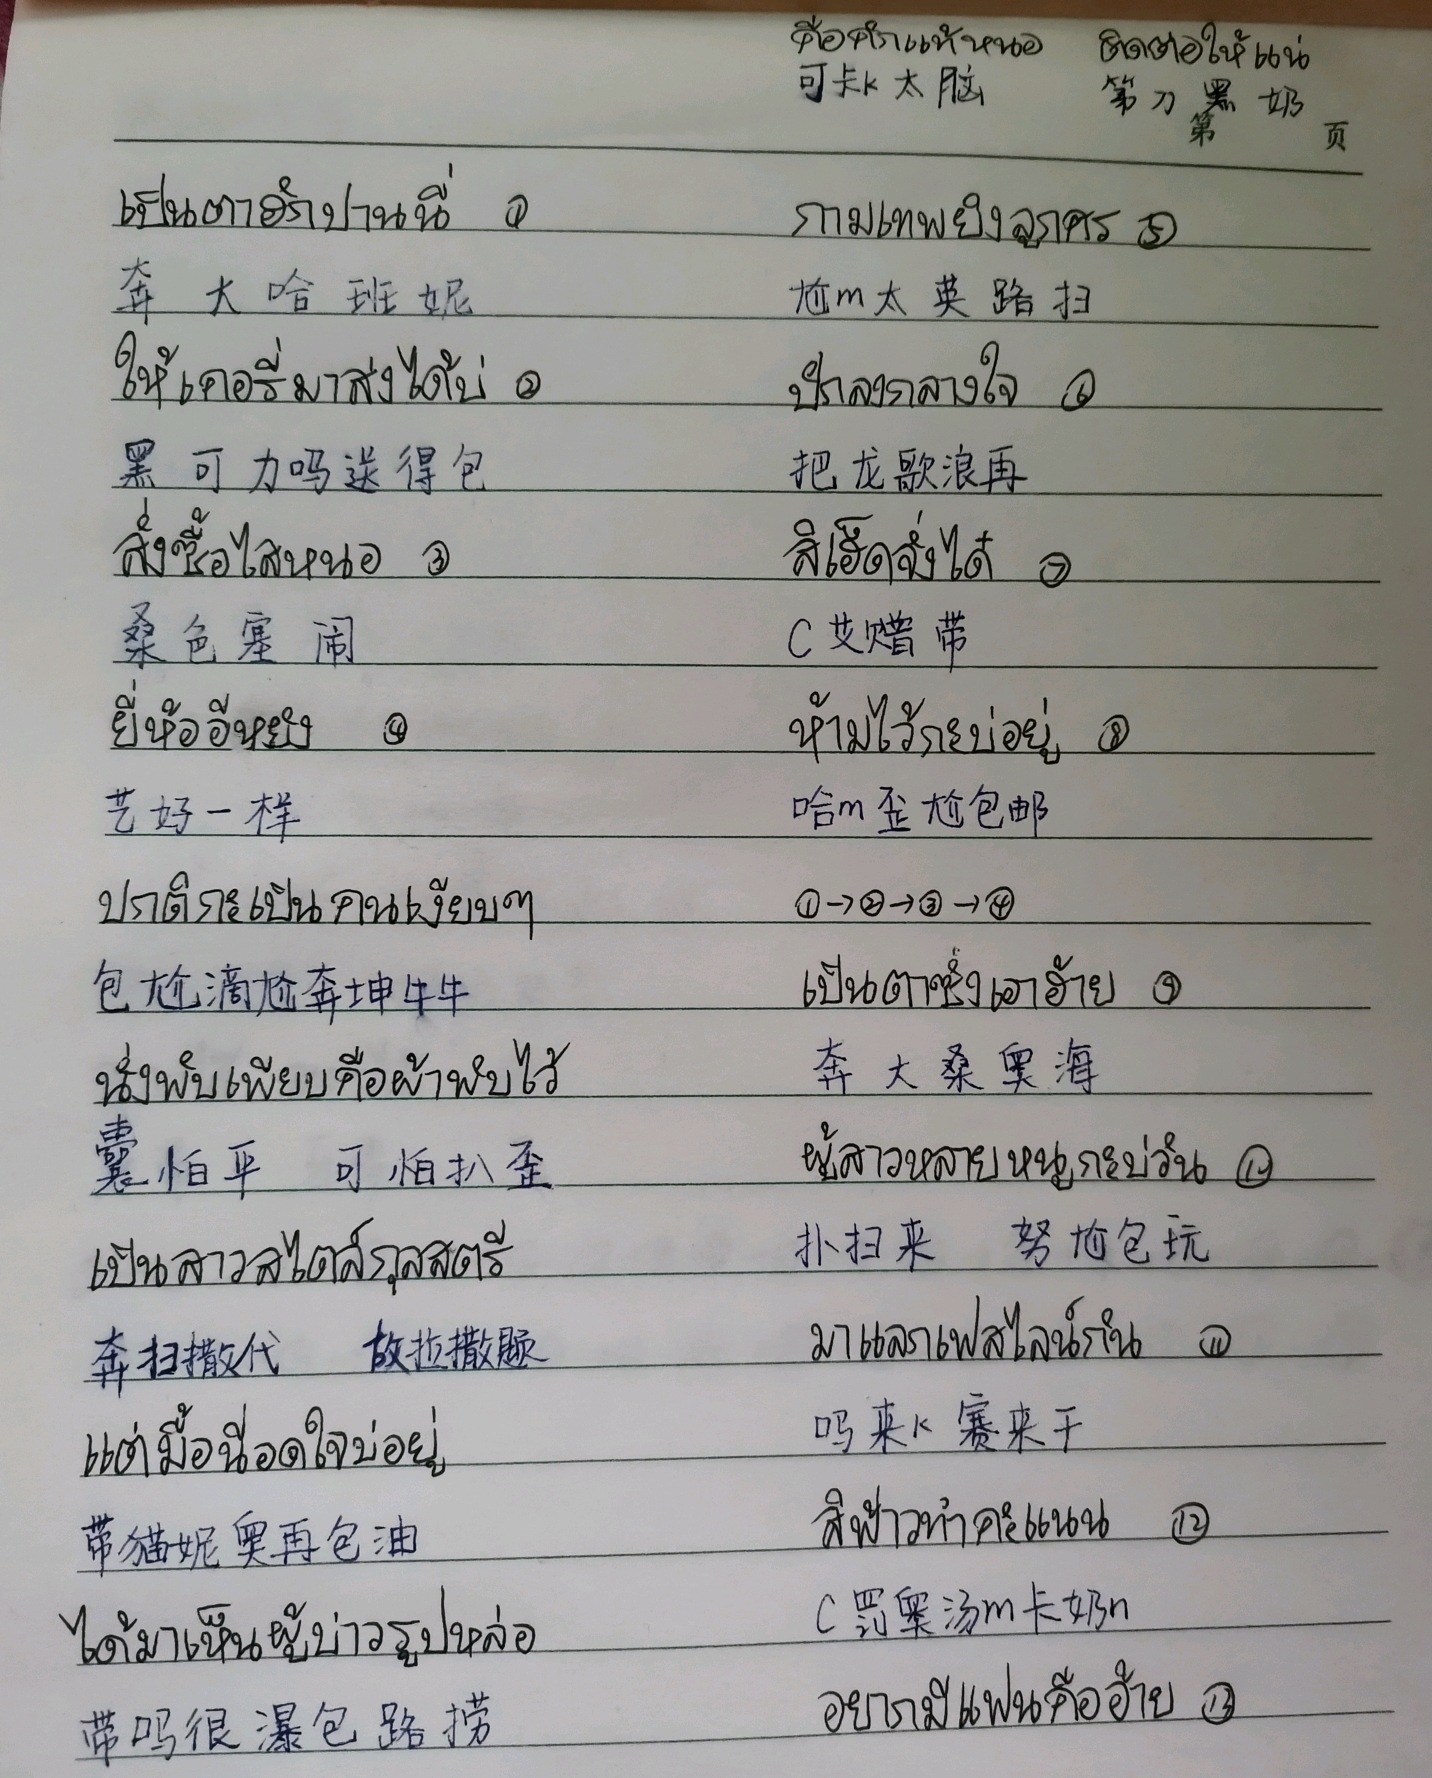 คือคักแท้หนอ ติดต่อให้แน่
可卡k太脑 第刀黑奶
第 页
เป็นตาฮักปานนี่ ①
奔大哈班妮
ให้เคอรี่มาส่งได้บ่ ②
黑可力吗送得包
สั่งซื้อไสหนอ ③
桑色塞闹
ยี่ห้ออีหยัง ④
艺好一样
ปกติกะเป็นคนเงียบๆ
包尬滴尬奔坤牛牛
นั่งพับเพียบคือผ้าพับไว้
囊怕平 可怕扒歪
เป็นสาวสไตล์กุลสตรี
奔扫撒代 故拉撒题
แต่มื้อนี้อดใจบ่อยู่
带猫妮奥再包油
ได้มาเห็นผู้บ่าวรูปหล่อ
带吗很瀑包路捞
กามเทพยิงลูกศร ⑤
尬m太英路扫
ปักลงกลางใจ ⑥
把龙歌浪再
สิเฮ็ดจั่งได๋ ⑦
C艾赠带
ห้ามไว้กะบ่อยู่ ⑧
哈m歪尬包邮
①→②→③→④
เป็นตาซั่งเอาฮ้าย ⑨
奔大桑奥海
ผู้สาวหลายหนูกะบ่วัน ⑩
扑扫来 努尬包玩
มาแลกเฟสไลน์กัน ⑪
吗来k赛来干
สิฟ้าวทำคะแนน ⑫
C罚奥汤m卡奶n
อยากมีแฟนคืออ้าย ⑬